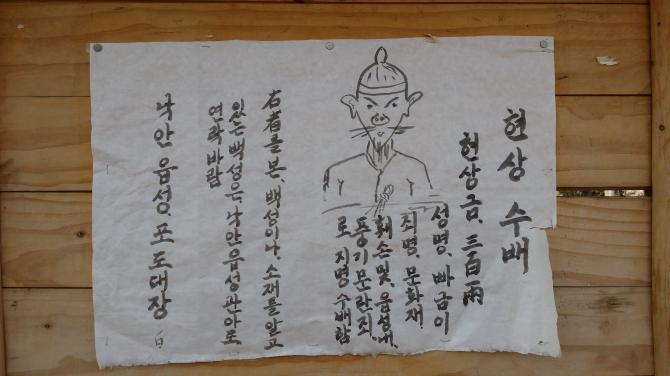 현상 수배
현상금, 三百兩
성명, 빠금이
죄명, 문화재,
훼손 및, 읍성내,
풍기문란죄,
로 지명수배함
右者를 본, 백성이나, 소재를 알고
있는 백성은, 낙안읍성 관아로
연락바람
낙안 읍성, 포도대장